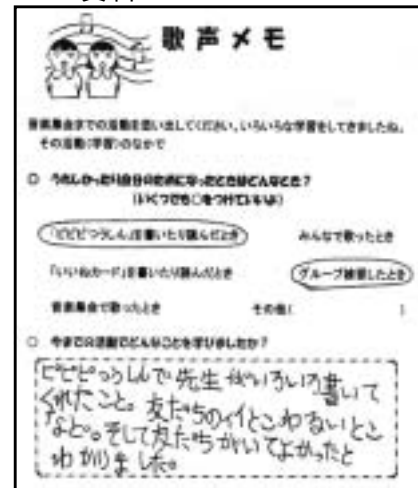 歌声メモ
音楽集会までの活動を思い出してください。いろいろな学習をしてきましたね。
その活動(学習)のなかで
○ うれしかったり自分のためになったときはどんなとき?
(いくつでも○をつけていいよ)
「ピピピつうしん」を書いたり読んだとき みんなで歌ったとき
「いいねカード」を書いたり読んだとき グループ練習したとき
音楽集会で歌ったとき その他(
○ 今までの活動でどんなことを学びましたか?
ピピピつうしんで先生がいろいろ書いて
くれたこと。友だちのイイとこわるいとこ
など。そして友だちがいてよかったと
わかりました。